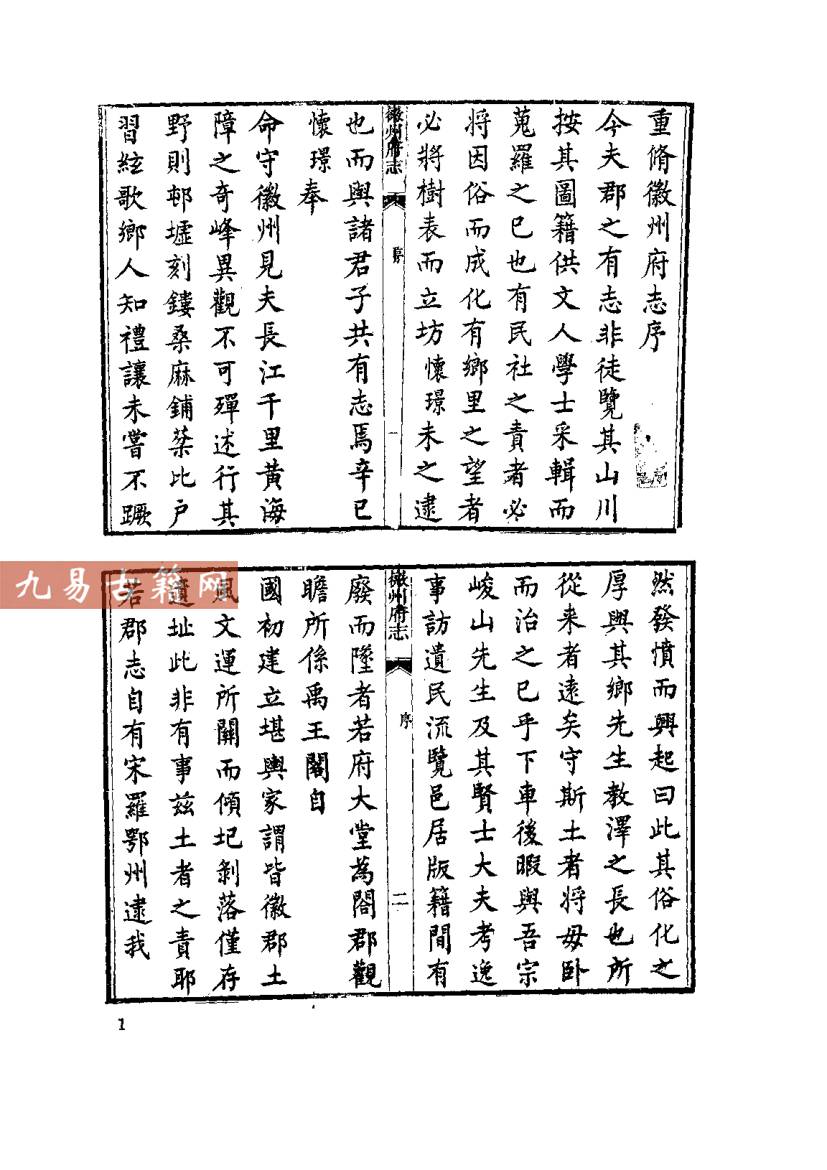 重脩徽州府志序
今夫郡之有志非徒覽其山川
按其圖籍供文人學士采輯而
蒐羅之已也有民社之責者必
將因俗而成化有鄉里之望者
必將樹表而立坊懷璟未之逮
徽州府志
序
一
也而與諸君子共有志焉辛巳
懷璟奉
命守徽州見夫長江千里黃海
障之奇峰異觀不可殫述行其
野則邨墟刻鏤桑麻鋪棻比戶
習絃歌鄉人知禮讓未嘗不蹶
然發憤而興起曰此其俗化之
厚與其鄉先生教澤之長也所
從来者遠矣守斯土者將毋卧
而治之已乎下車後暇與吾宗
峻山先生及其賢士大夫考逸
事訪遺民流覽邑居版籍間有
徽州府志
序
二
廢而墜者若府大堂為閤郡觀
瞻所係禹王閣自
國初建立堪輿家謂皆徽郡土
風文運所關而傾圮剝落僅存
遺址此非有事兹土者之責耶
若郡志自有宋羅鄂州逮我
九易古籍网
1